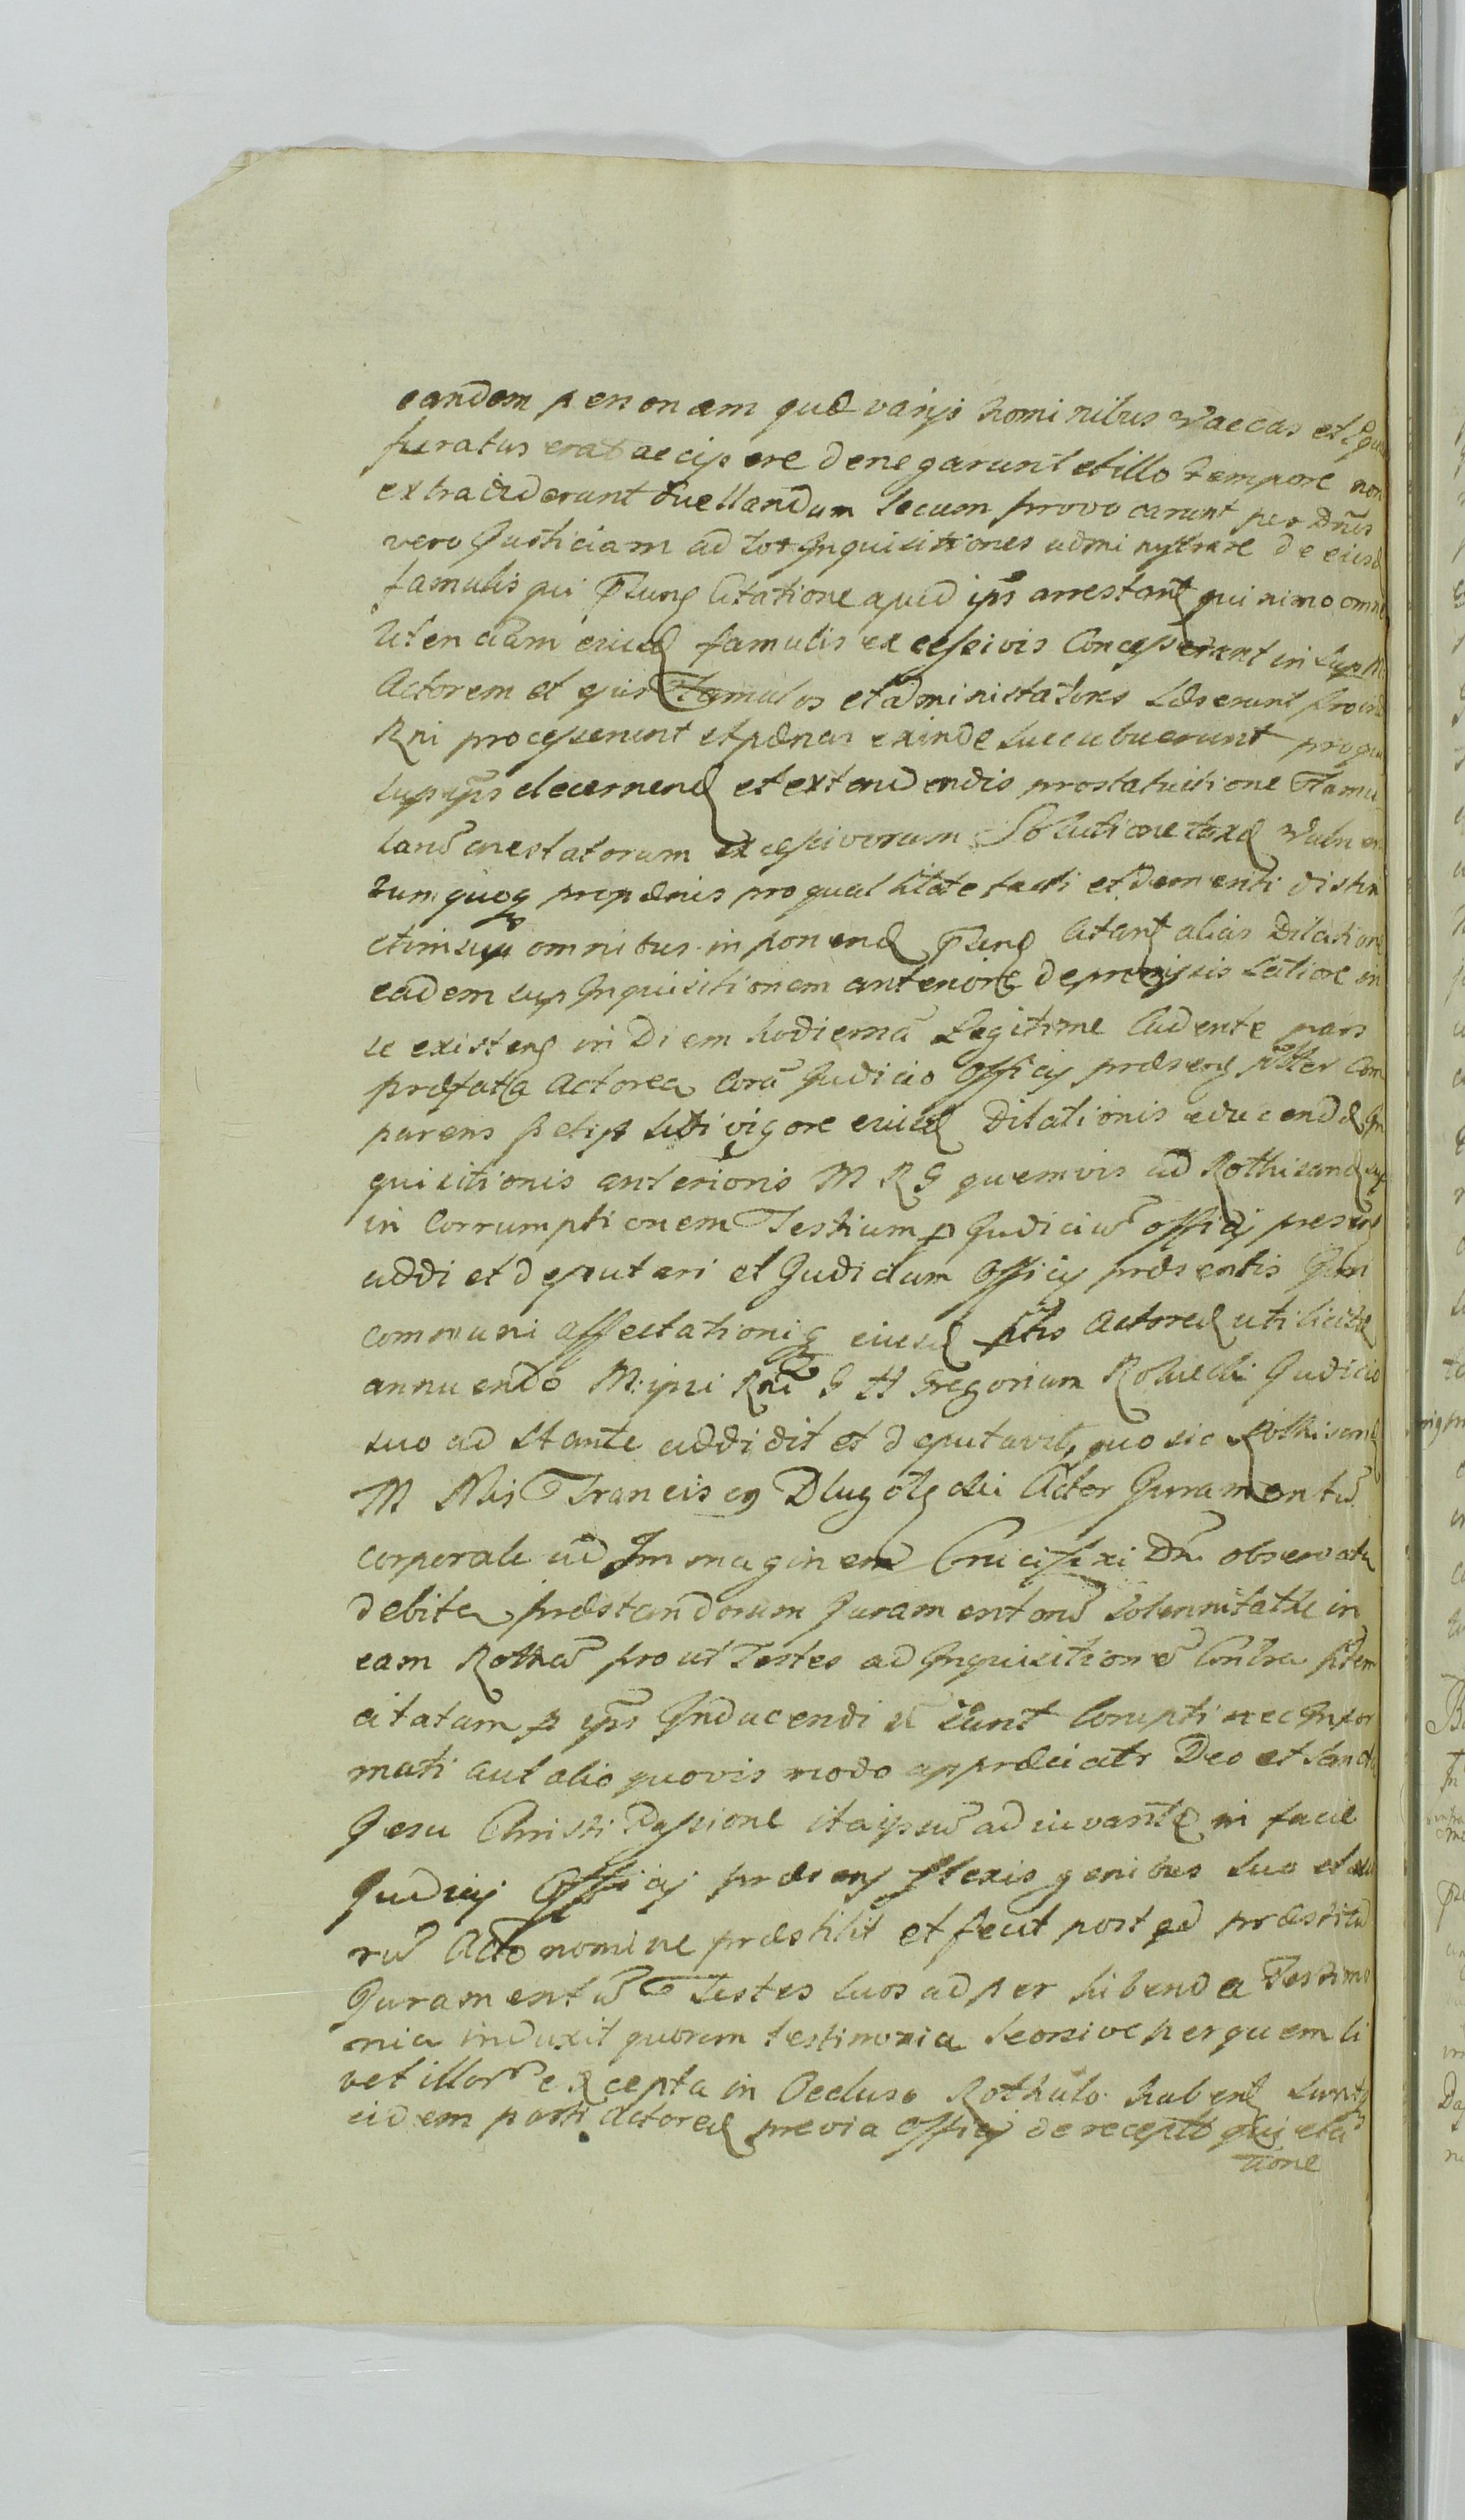 eandem personam quæ varijs hominibus Vaccas et Equ
furatus erat accipere denegarunt et illo tempore non
extradiderunt duellandum secum provocarunt per Dnũs
vero Justiciam ad tot Inquisitiones administrare de eiusd
famulis qui Citatione apud ips arrestant quinimo omne
eiusd famulis excessivis Concesserant in sup M
Actorem et eius Famulos et administratores Læserunt
Rni processerunt et pænas exinde succubuerunt pro qui
sup ips decernend et extendendis pro statuitione Famu
laru arestatorum excessivorum Solutione taxæ Vulne
rum quoq pro pænis pro qualitate facti et demeriti distin
ctim sup omnibus imponend Citant alias Dilatione
eadem sup Inquisitionem anteriore de præmissis Latiore in
se existen in Diem hodierna Legitime Cadente pars
præfata Actorea Cora Judicio Officij præsens Com
parens petijt sibi vigore eiusd Dilationis educendæ In
quisitionis anterioris M R G quemvis ad Rothisand sup
in Corrumptionem Testium p Judiciũ officij presens
addi et deputari et Judicium Officij præsentis Juri
communi affectationiq eiusd ptis Actoreæ utilicite
annuendo M: ipsi Rni G H Gregorium Judicio
suo adstante addidit et deputavit, quo sic Rothisand
M Nlis Francisco Actor Juramentũ
corporale ad Immaginem Crucifixi Dni observata
debita præstandorum Juramentorũ solennitathe in
eam Rotham prout Testes ad Inquisitionẽ Contra ptem
citatam p ips Inducendi n sunt Corupti nec Infor
mati aut alio quovis modo appræciati Deo et sancta
Jesu Christi Passione ita ipsũ adiuvante in facie
Judicij Officij præsens flexis genibus suo et
rũ Acto nomine præstitit et fecit post qd præstitũ
Juramentũ Testes suos ad perhibenda Testimo
nia induxit quorum testimonia seorsive per quemli
vet illorũ excepta in Occluso Rothulo habent sunt
eidem parti Actoreæ previa officij de recepto
tione